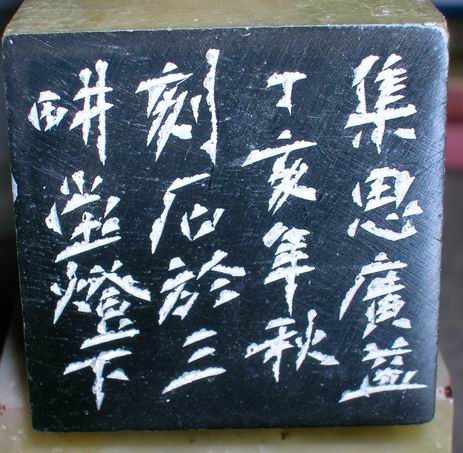 集思廣益
丁亥年秋
刻石於三
畊堂燈下